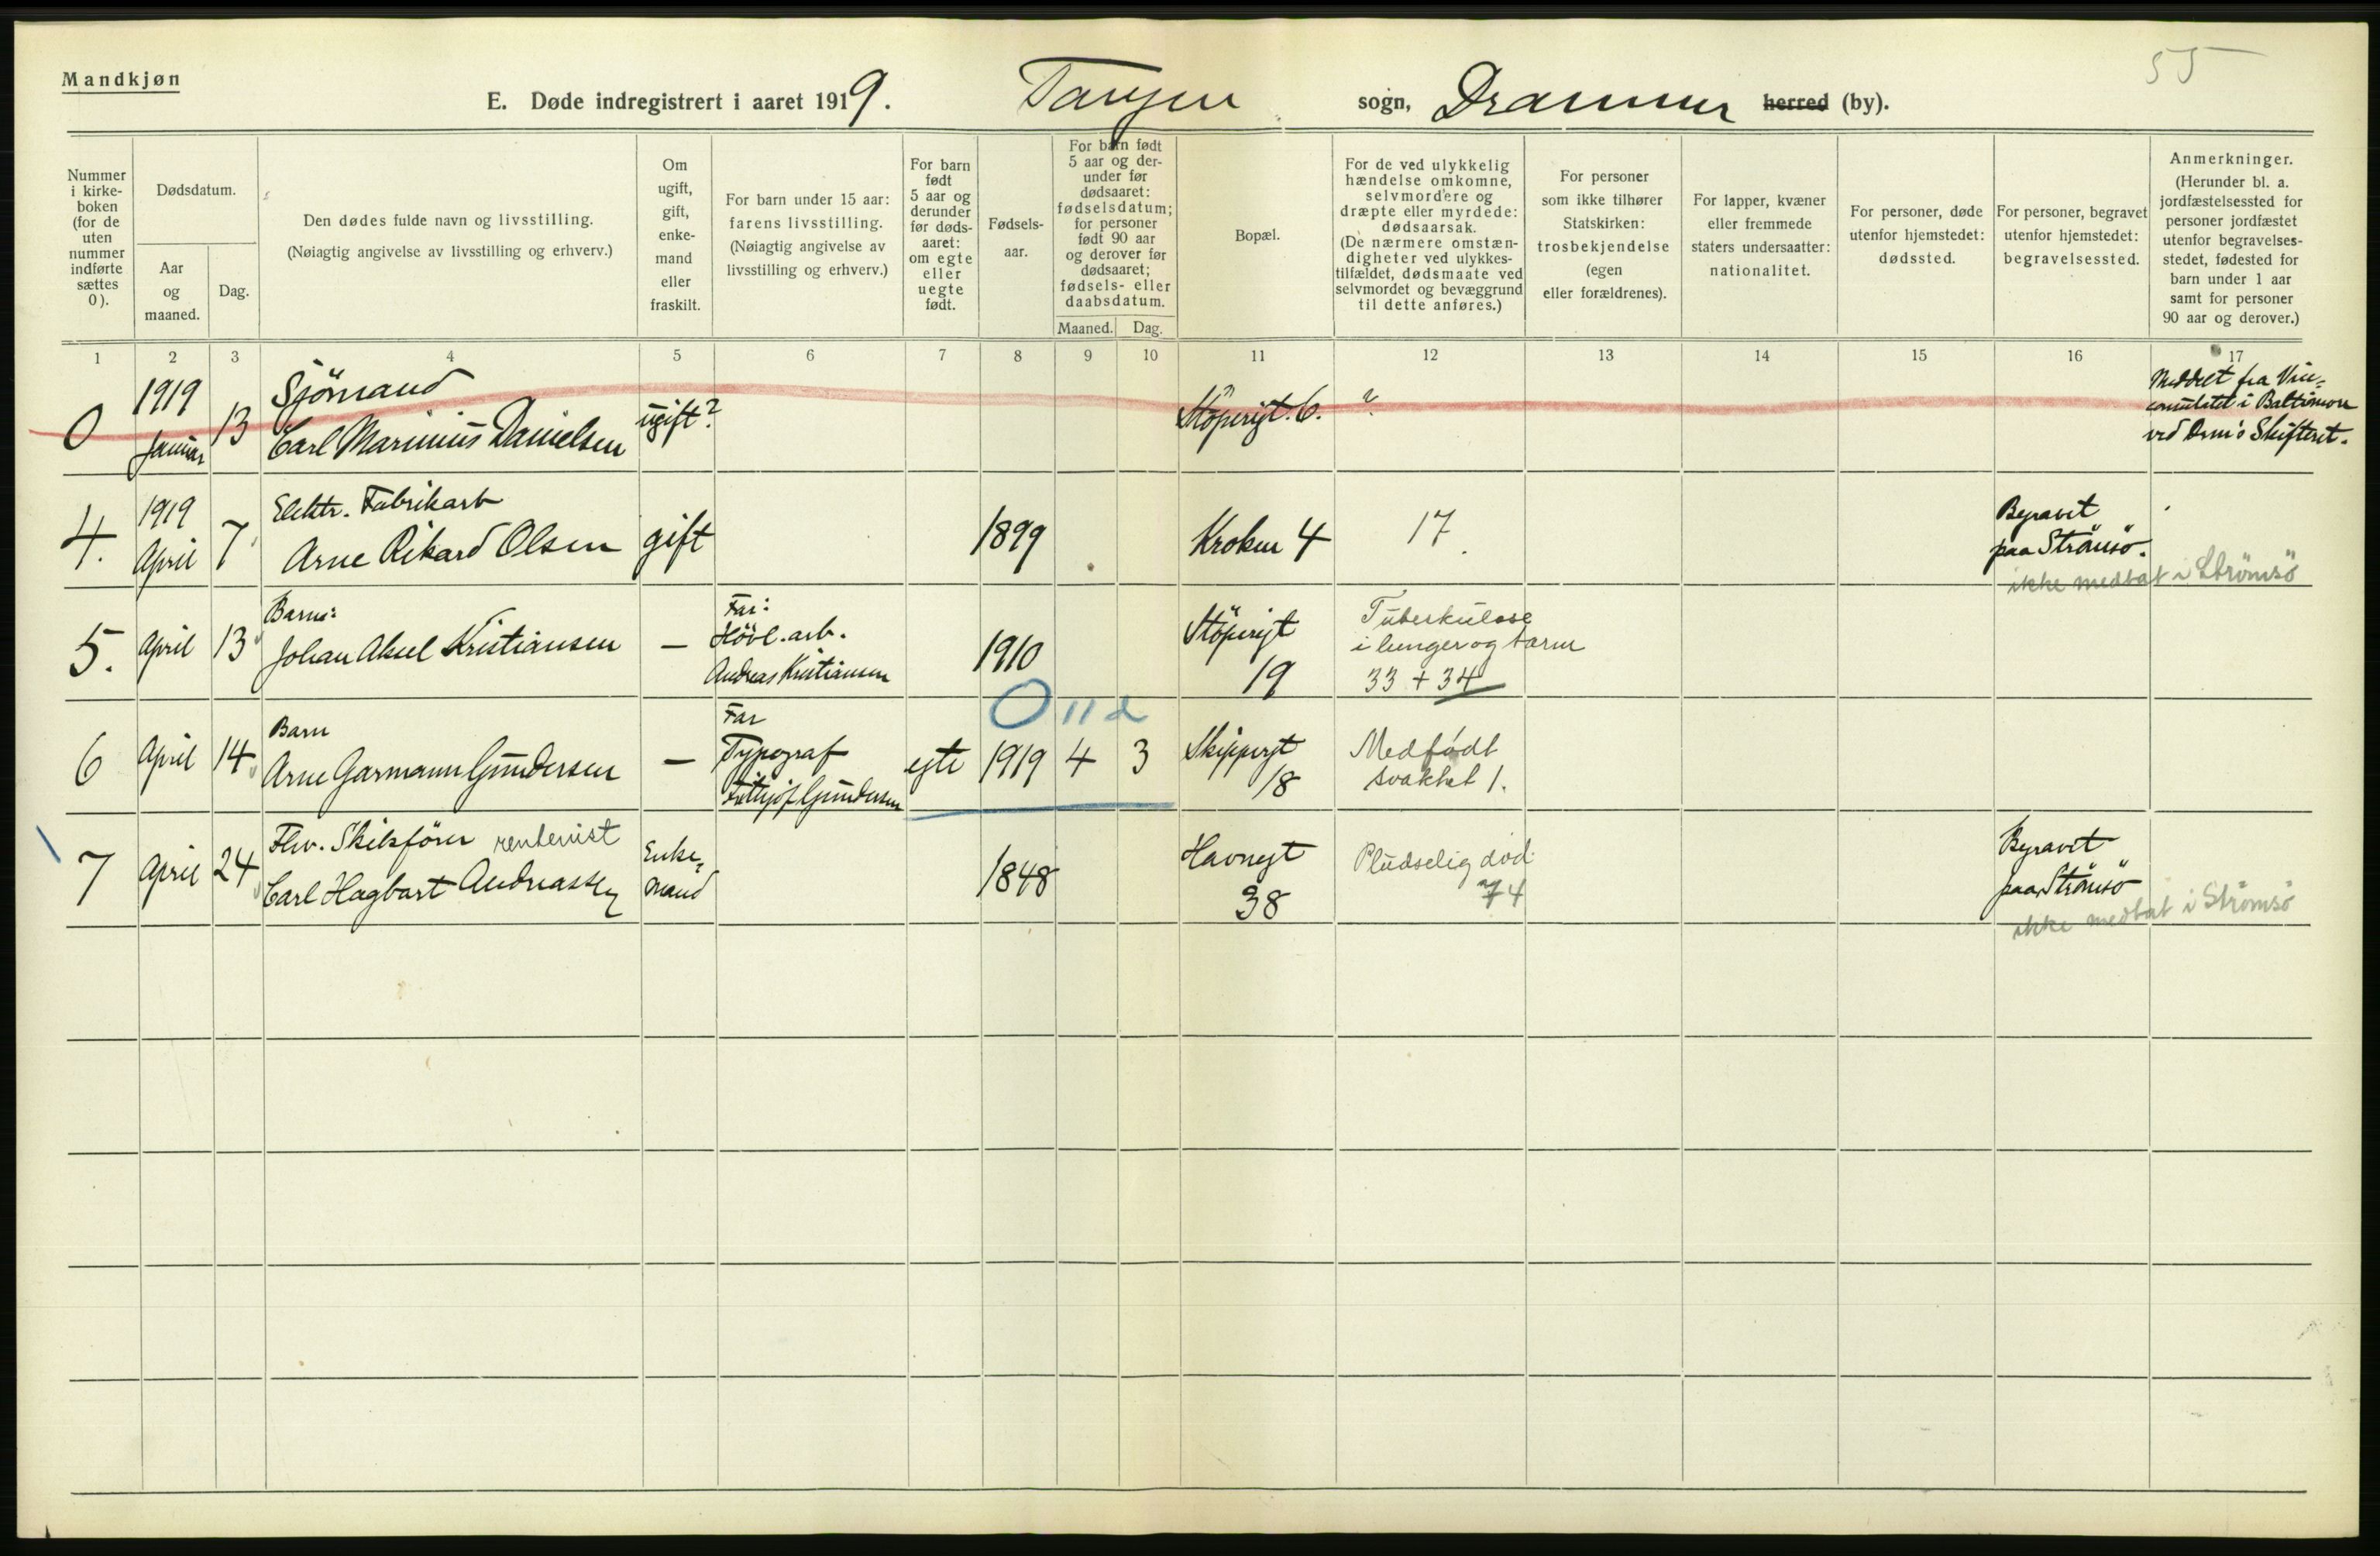 Mandkjøn
55
E. Døde indregistrert i aaret 1919. Tangen sogn, Drammen herred (by).
Nummer
i kirke-
boken
(for de
uten
nummer
indførte
sættes
0).
Dødsdatum.
Aar
og
maaned.
Dag.
Den dødes fulde navn og livsstilling.
(Nøiagtig angivelse av livsstilling og erhverv.)
Om
ugift,
gift,
enke-
mand
eller
fraskilt.
For barn under 15 aar:
farens livsstilling.
(Nøiagtig angivelse av
livsstilling og erhverv.)
For barn
født
5 aar og
derunder
før døds-
aaret:
om egte
eller
uegte
født.
Fødsels-
aar.
For barn født
5 aar og der-
under før
dødsaaret:
fødselsdatum;
for personer
født 90 aar
og derover før
dødsaaret;
fødsels- eller
daabsdatum.
Maaned.
Dag.
Bopæl.
For de ved ulykkelig
hændelse omkomne,
selvmordere og
dræpte eller myrdede:
dødsaarsak.
(De nærmere omstæn-
digheter ved ulykkes-
tilfældet, dødsmaate ved
selvmordet og bevæggrund
til dette anføres.)
For personer
som ikke tilhører
Statskirken:
trosbekjendelse
(egen
eller forældrenes).
For lapper, kvæner
eller fremmede
staters undersaatter:
nationalitet.
For personer, døde
utenfor hjemstedet:
dødssted.
For personer, begravet
utenfor hjemstedet:
begravelsessted.
Anmerkninger.
(Herunder bl. a.
jordfæstelsessted for
personer jordfæstet
utenfor begravelses-
stedet, fødested for
barn under 1 aar
samt for personer
90 aar og derover.)
1 2 3 4 5 6 7 8 9 10 11 12 13 14 15 16 17
0
1919
Januar
13
Sjömand
Carl Marinius Danielsen
ugift?
Støperigt. 6.
?
Meddelt fra Vice-
consulatet i Baltimore
ved Drm's Skifteret.
4.
1919
April
7
Elektr. Fabrikarb
Arne Rikard Olsen
gift
1899
Kroken 4
17.
Begravet
paa Strömsö.
ikke medtat i Strömsö
5.
April
13
Barn:
Johan Aksel Kristiansen
—
Far:
Hövl. arb.
Andreas Kristiansen
1910
Støperigt
19
Tuberkulose
i lunger og tarm
33 + 34
0 11 d
6
April
14
Barn
Arne Garmann Gundersen
—
Far
Typograf
Fritjof Gundersen
egte
1919
4
3
Skippergt
18
Medfødt
svakhet 1.
7
April
24
Fhv. Skibsfører rentenist
Carl Hagbart Andreassen
Enke-
mand
1848
Havnegt
38
Pludselig død
74
Begravet
paa Strömsö
ikke medtat i Strömsö